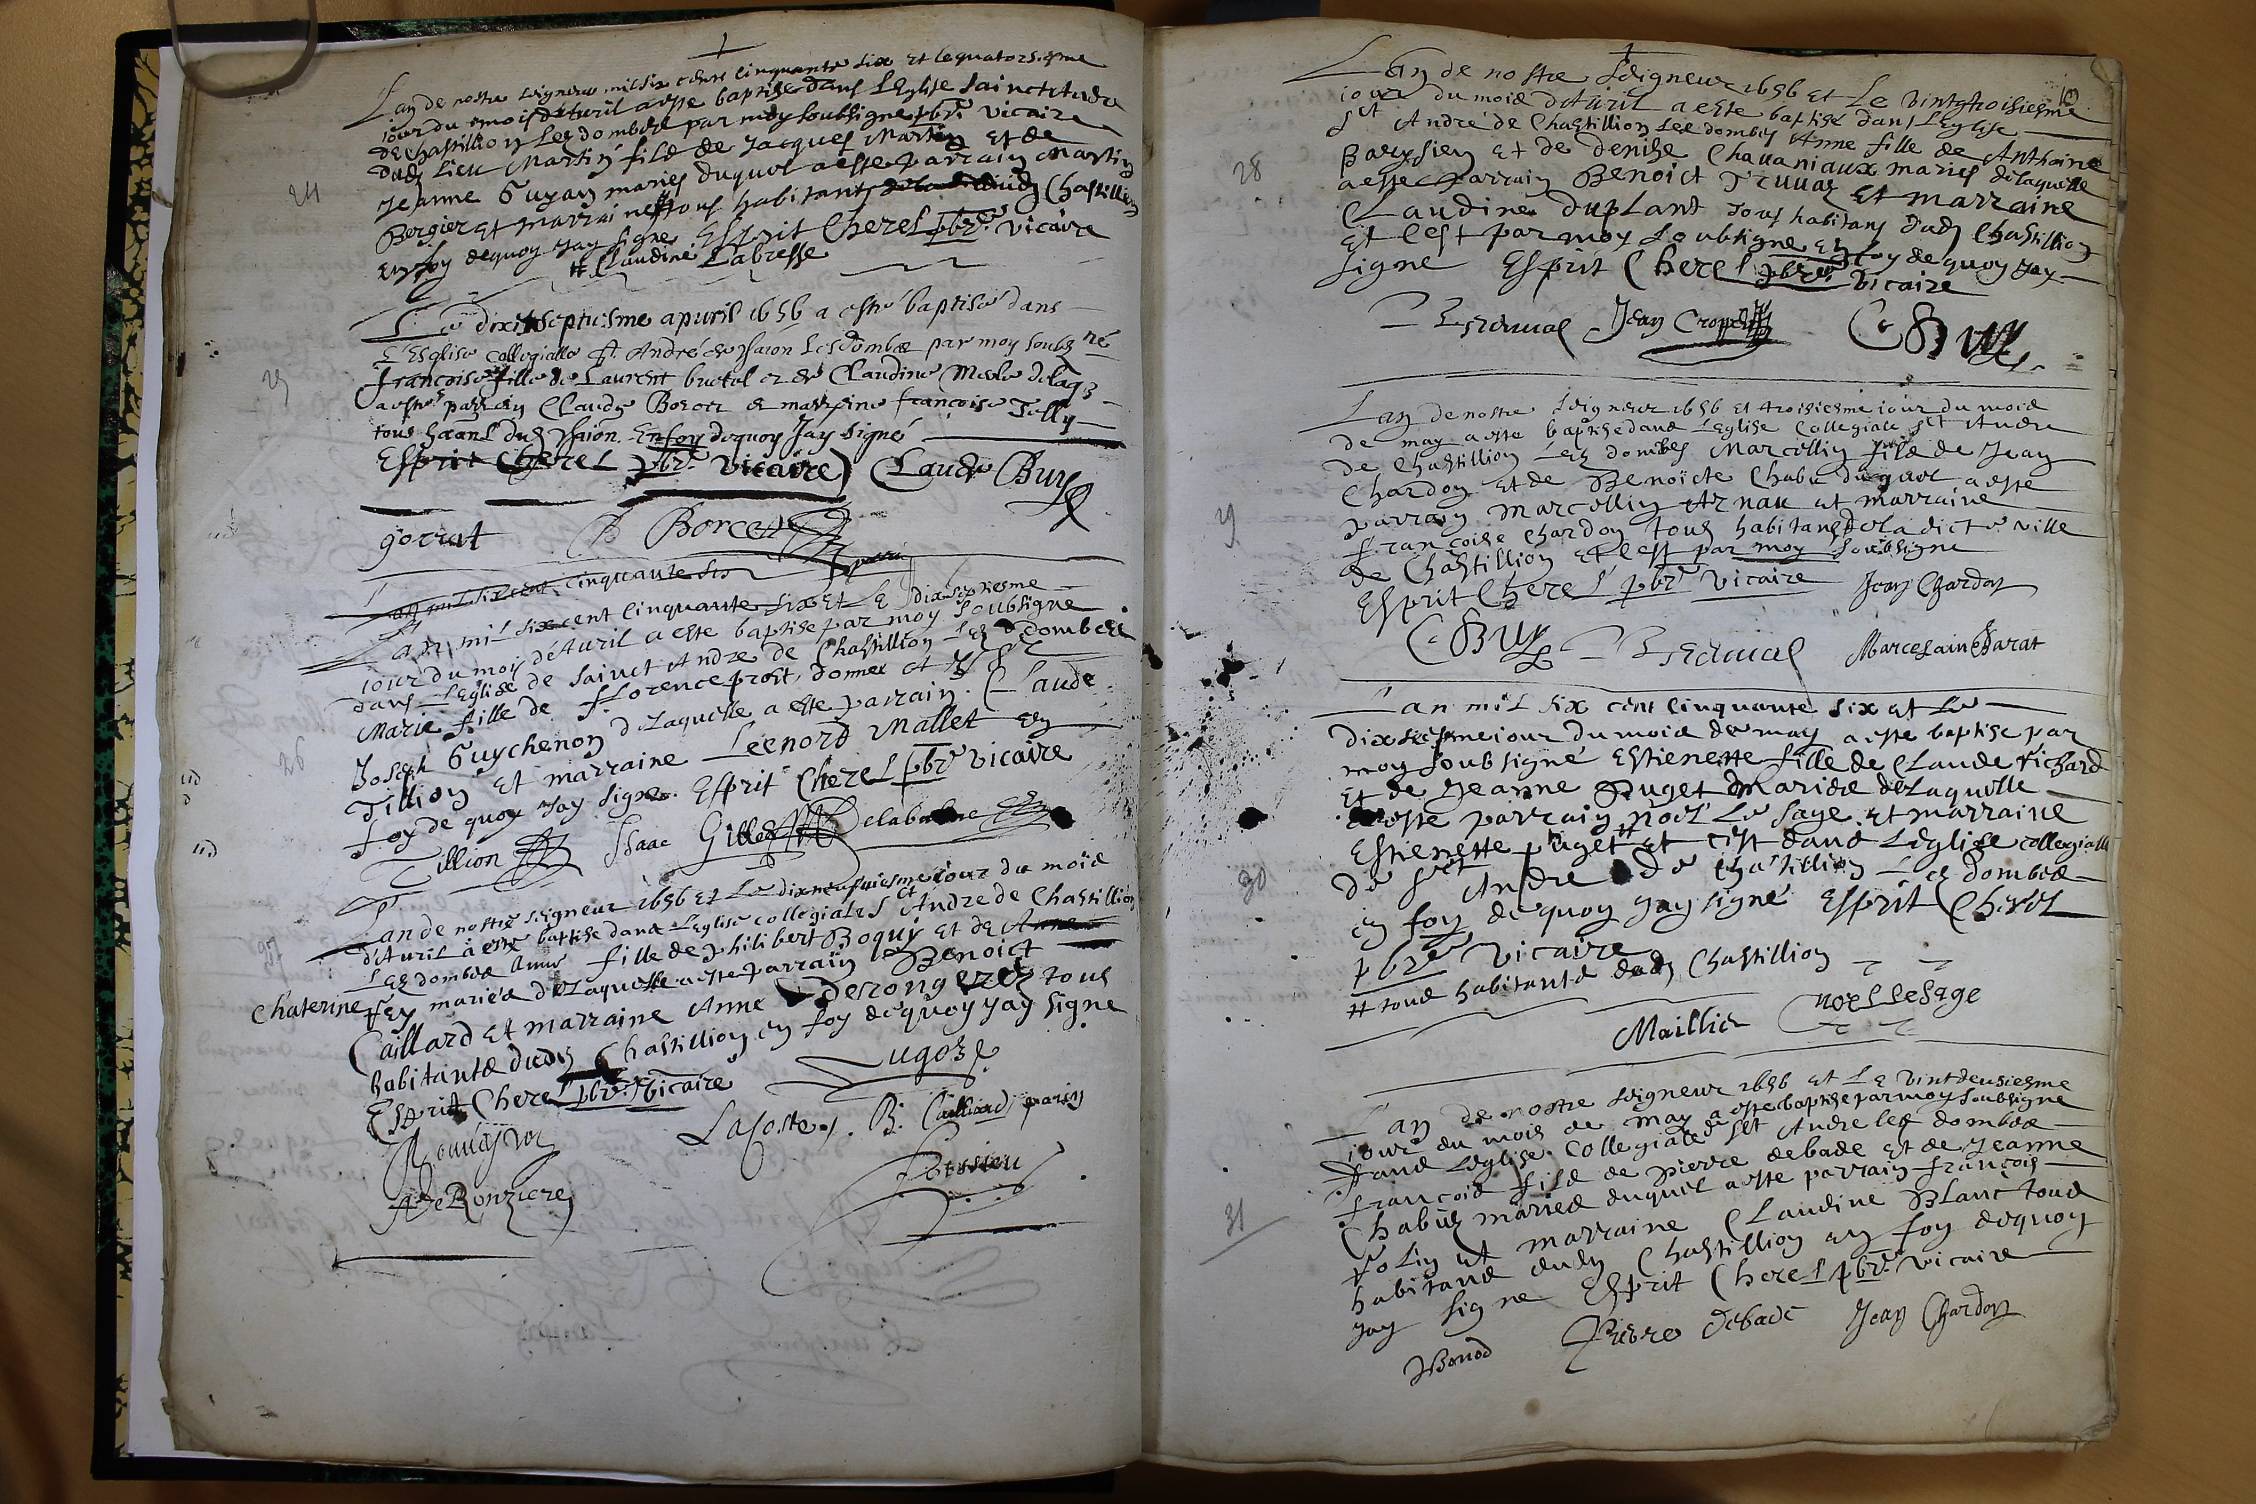 Lan de nostre seigneur mil six cent cinquante six et le quatorsiesme
iour du mois d'Avril a este baptise dans L'Eglise sainct Andre
de Chastillion Les dombes par moy soubsigne pbre vicaire
dudt Lieu Martin fils de Jacques Martin et de
Jeanne Guyan maries duquel a este parrain Martin
24
Bergier et marraine # tous habitants dudt Chastillion
en foy dequoy Jay signe Esprit Cherel pbre vicaire
# Claudine Labresse
Le dixseptiesme apvril 1656 a esté baptisé dans
L'Esglise collegialle St André par moy soubzné
25
francoise fille de Laurent et de Claudine
a esté parrain Claude Borcet et marraine francoise Tilly
tous En foy dequoy Jay signé
Esprit Cherel pbre vicaire Claude Buy
gorrat B Borcet
Lan mil six cent cinquante six
Lan mil six cent cinquante six et Le dixseptiesme
iour du mois d'Avril a este baptise par moy soubsigne
dans L'Eglise de sainct Andre de Chastillion Les dombes
Marie fille de fLorence
26
Joseph Guychenon de Laquelle a este parrain Claude
Tillion et marraine Leenord Mallet en
foy de quoy Jay signe. Esprit Cherel pbre vicaire
Tillion Isaac Gilles Delabalme
Lan de nostre seigneur 1656 et Le dixneufviesme iour du mois
d'Avril à esté baptise dans L'eglise collegiales St Andre de Chastillion
27
Les dombes Anne fille de philibert Boquy et de Anne
Chaterine fey mariés de Laquelle a este parrain Benoict
Caillard et marraine Anne tous
habitants dudt Chastillion en foy dequoy Jay signe
Esprit Cherel pbre vicaire Lugoz
Lacoste B. Cailliard parin
A De Ronzieres
10
Lan de nostre seigneur 1656 et Le vintgtroisiesme
iour du mois d'Avril a este baptisé dans L'Eglise
St André de Chastillion Les dombes Anne fille de Anthoine
28
Barysien et de denise Chavaniaux mariés de laquelle
a este parrain Benoict et marraine
Claudine duplant tous habitans dudt Chastillion
et c'est par moy soubsigne en foy de quoy Jay
signe Esprit Cherel pbre vicaire
Jean C. Buy
Lan de nostre seigneur 1656 et troisiesme iour du mois
de may a este baptise dans L'Eglise Collegiale sct Andre
de Chastillion Les dombes Marcellin fils de Jean
Chardon et de Benoicte Chabu duquel a este
29
parrain Marcellin Arnau et marraine
françoise Chardon tous habitans de la dicte ville
de Chastillion et c'est par moy soubsigne
Esprit Cherel pbre vicaire Jean Chardon
C. Buy
Lan mil six cent cinquante six et Le
dixsiesme iour du mois de may a este baptise par
moy soubsigné Estienette fille de Claude richard
et de Jeanne Puget mariés de Laquelle
a este parrain noël Le sage et marraine
Estienette puget # et c'est dans L'eglise collegialle
30
de sct Andre de Chastillion Les dombes
en foy de quoy Jay signé Esprit Cherel
pbre vicaire
# tous habitants dudt Chastillion
Maillier noël Lesage
Lan de nostre seigneur 1656 et Le vintdeusiesme
iour du mois de may a este baptise par moy soubsigne
dans L'eglise Collegiale de sct Andre les dombes
françois fils de Pierre debade et de Jeanne
Chabus mariés duquel a este parrain françois
31
folin et marraine Claudine Blanc tous
habitans dudt Chastillion en foy dequoy
Jay signe Esprit Cherel pbre vicaire
Bonod Pierre Debade Jean Chardon